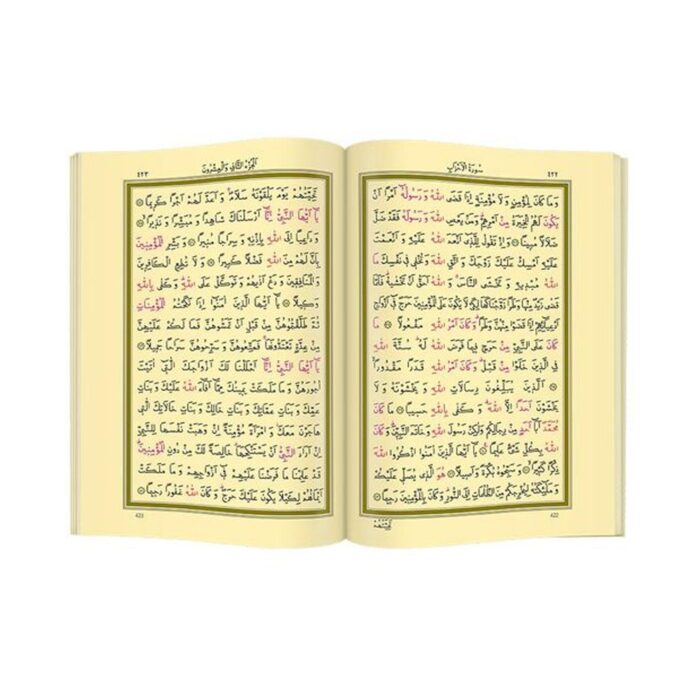 سُورَةُ الْاَحْزَابِ ٤٢٢
وَمَا كَانَ لِمُؤْمِنٍ وَلَا مُؤْمِنَةٍ اِذَا قَضَى اللّٰهُ وَرَسُولُهُٓ اَمْرًا اَنْ
يَكُونَ لَهُمُ الْخِيَرَةُ مِنْ اَمْرِهِمْ وَمَنْ يَعْصِ اللّٰهَ وَرَسُولَهُ فَقَدْ ضَلَّ
ضَلَالًا مُبِينًا ۞ وَاِذْ تَقُولُ لِلَّذِٓي اَنْعَمَ اللّٰهُ عَلَيْهِ وَاَنْعَمْتَ
عَلَيْهِ اَمْسِكْ عَلَيْكَ زَوْجَكَ وَاتَّقِ اللّٰهَ وَتُخْفِي فِي نَفْسِكَ مَا
اللّٰهُ مُبْدِيهِ وَتَخْشَى النَّاسَ وَاللّٰهُ اَحَقُّ اَنْ تَخْشٰيهُ فَلَمَّا
قَضٰى زَيْدٌ مِنْهَا وَطَرًا زَوَّجْنَاكَهَا لِكَيْ لَا يَكُونَ عَلَى الْمُؤْمِنِينَ حَرَجٌ فِٓي اَزْوَاجِ
اَدْعِيَٓائِهِمْ اِذَا قَضَوْا مِنْهُنَّ وَطَرًا وَكَانَ اَمْرُ اللّٰهِ مَفْعُولًا ۞ مَا
كَانَ عَلَى النَّبِيِّ مِنْ حَرَجٍ فِيمَا فَرَضَ اللّٰهُ لَهُ سُنَّةَ اللّٰهِ
فِي الَّذِينَ خَلَوْا مِنْ قَبْلُ وَكَانَ اَمْرُ اللّٰهِ قَدَرًا مَقْدُورًا
۞ اَلَّذِينَ يُبَلِّغُونَ رِسَالَاتِ اللّٰهِ وَيَخْشَوْنَهُ وَلَا
يَخْشَوْنَ اَحَدًا اِلَّا اللّٰهَ وَكَفٰى بِاللّٰهِ حَسِيبًا ۞ مَا كَانَ
مُحَمَّدٌ اَبَٓا اَحَدٍ مِنْ رِجَالِكُمْ وَلٰكِنْ رَسُولَ اللّٰهِ وَخَاتَمَ النَّبِيّٖنَ وَكَانَ
اللّٰهُ بِكُلِّ شَيْءٍ عَلِيمًا ۞ يَٓا اَيُّهَا الَّذِينَ اٰمَنُوا اذْكُرُوا اللّٰهَ
ذِكْرًا كَثِيرًا ۞ وَسَبِّحُوهُ بُكْرَةً وَاَصِيلًا ۞ هُوَ الَّذِي يُصَلِّي عَلَيْكُمْ
وَمَلٰٓئِكَتُهُ لِيُخْرِجَكُمْ مِنَ الظُّلُمَاتِ اِلَى النُّورِ وَكَانَ بِالْمُؤْمِنِينَ رَحِيمًا ۞
422
تَحِيَّتُهُمْ
اَلْجُزْءُ الثَّانِي وَالْعِشْرُونَ ٤٢٣
تَحِيَّتُهُمْ يَوْمَ يَلْقَوْنَهُ سَلَامٌ وَاَعَدَّ لَهُمْ اَجْرًا كَرِيمًا ۞
يَٓا اَيُّهَا النَّبِيُّ اِنَّٓا اَرْسَلْنَاكَ شَاهِدًا وَمُبَشِّرًا وَنَذِيرًا ۞
وَدَاعِيًا اِلَى اللّٰهِ بِاِذْنِهِ وَسِرَاجًا مُنِيرًا ۞ وَبَشِّرِ الْمُؤْمِنِينَ
بِاَنَّ لَهُمْ مِنَ اللّٰهِ فَضْلًا كَبِيرًا ۞ وَلَا تُطِعِ الْكَافِرِينَ
وَالْمُنَافِقِينَ وَدَعْ اَذٰيهُمْ وَتَوَكَّلْ عَلَى اللّٰهِ وَكَفٰى بِاللّٰهِ
وَكِيلًا ۞ يَٓا اَيُّهَا الَّذِينَ اٰمَنُٓوا اِذَا نَكَحْتُمُ الْمُؤْمِنَاتِ
ثُمَّ طَلَّقْتُمُوهُنَّ مِنْ قَبْلِ اَنْ تَمَسُّوهُنَّ فَمَا لَكُمْ عَلَيْهِنَّ
مِنْ عِدَّةٍ تَعْتَدُّونَهَا فَمَتِّعُوهُنَّ وَسَرِّحُوهُنَّ سَرَاحًا جَمِيلًا ۞
يَٓا اَيُّهَا النَّبِيُّ اِنَّٓا اَحْلَلْنَا لَكَ اَزْوَاجَكَ الّٰتِٓي اٰتَيْتَ
اُجُورَهُنَّ وَمَا مَلَكَتْ يَمِينُكَ مِمَّٓا اَفَٓاءَ اللّٰهُ عَلَيْكَ وَبَنَاتِ
عَمِّكَ وَبَنَاتِ عَمَّاتِكَ وَبَنَاتِ خَالِكَ وَبَنَاتِ خَالَاتِكَ الّٰتِي
هَاجَرْنَ مَعَكَ وَامْرَاَةً مُؤْمِنَةً اِنْ وَهَبَتْ نَفْسَهَا لِلنَّبِيِّ
اِنْ اَرَادَ النَّبِيُّ اَنْ يَسْتَنْكِحَهَا خَالِصَةً لَكَ مِنْ دُونِ الْمُؤْمِنِينَ
قَدْ عَلِمْنَا مَا فَرَضْنَا عَلَيْهِمْ فِٓي اَزْوَاجِهِمْ وَمَا مَلَكَتْ
اَيْمَانُهُمْ لِكَيْلَا يَكُونَ عَلَيْكَ حَرَجٌ وَكَانَ اللّٰهُ غَفُورًا رَحِيمًا ۞
423